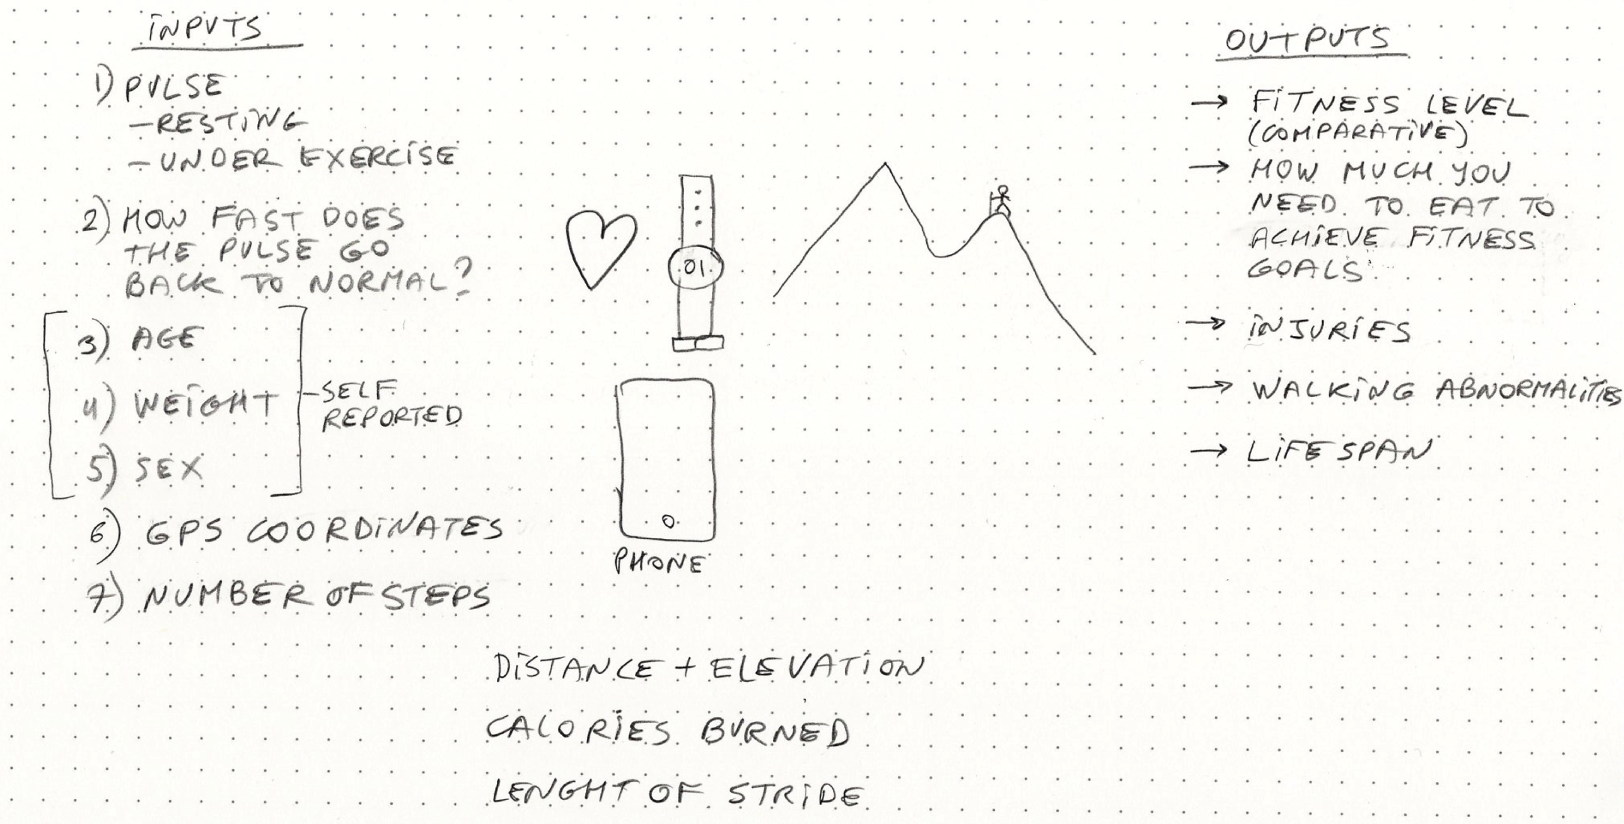 INPUTS
1) PULSE
- RESTING
- UNDER EXERCISE
2) HOW FAST DOES
THE PULSE GO
BACK TO NORMAL?
3) AGE
4) WEIGHT
5) SEX
SELF
REPORTED
6) GPS COORDINATES
7) NUMBER OF STEPS
01
PHONE
DISTANCE + ELEVATION
CALORIES BURNED
LENGHT OF STRIDE
OUTPUTS
→ FITNESS LEVEL
(COMPARATIVE)
→ HOW MUCH YOU
NEED TO EAT TO
ACHIEVE FITNESS
GOALS
→ INJURIES
→ WALKING ABNORMALITIES
→ LIFE SPAN